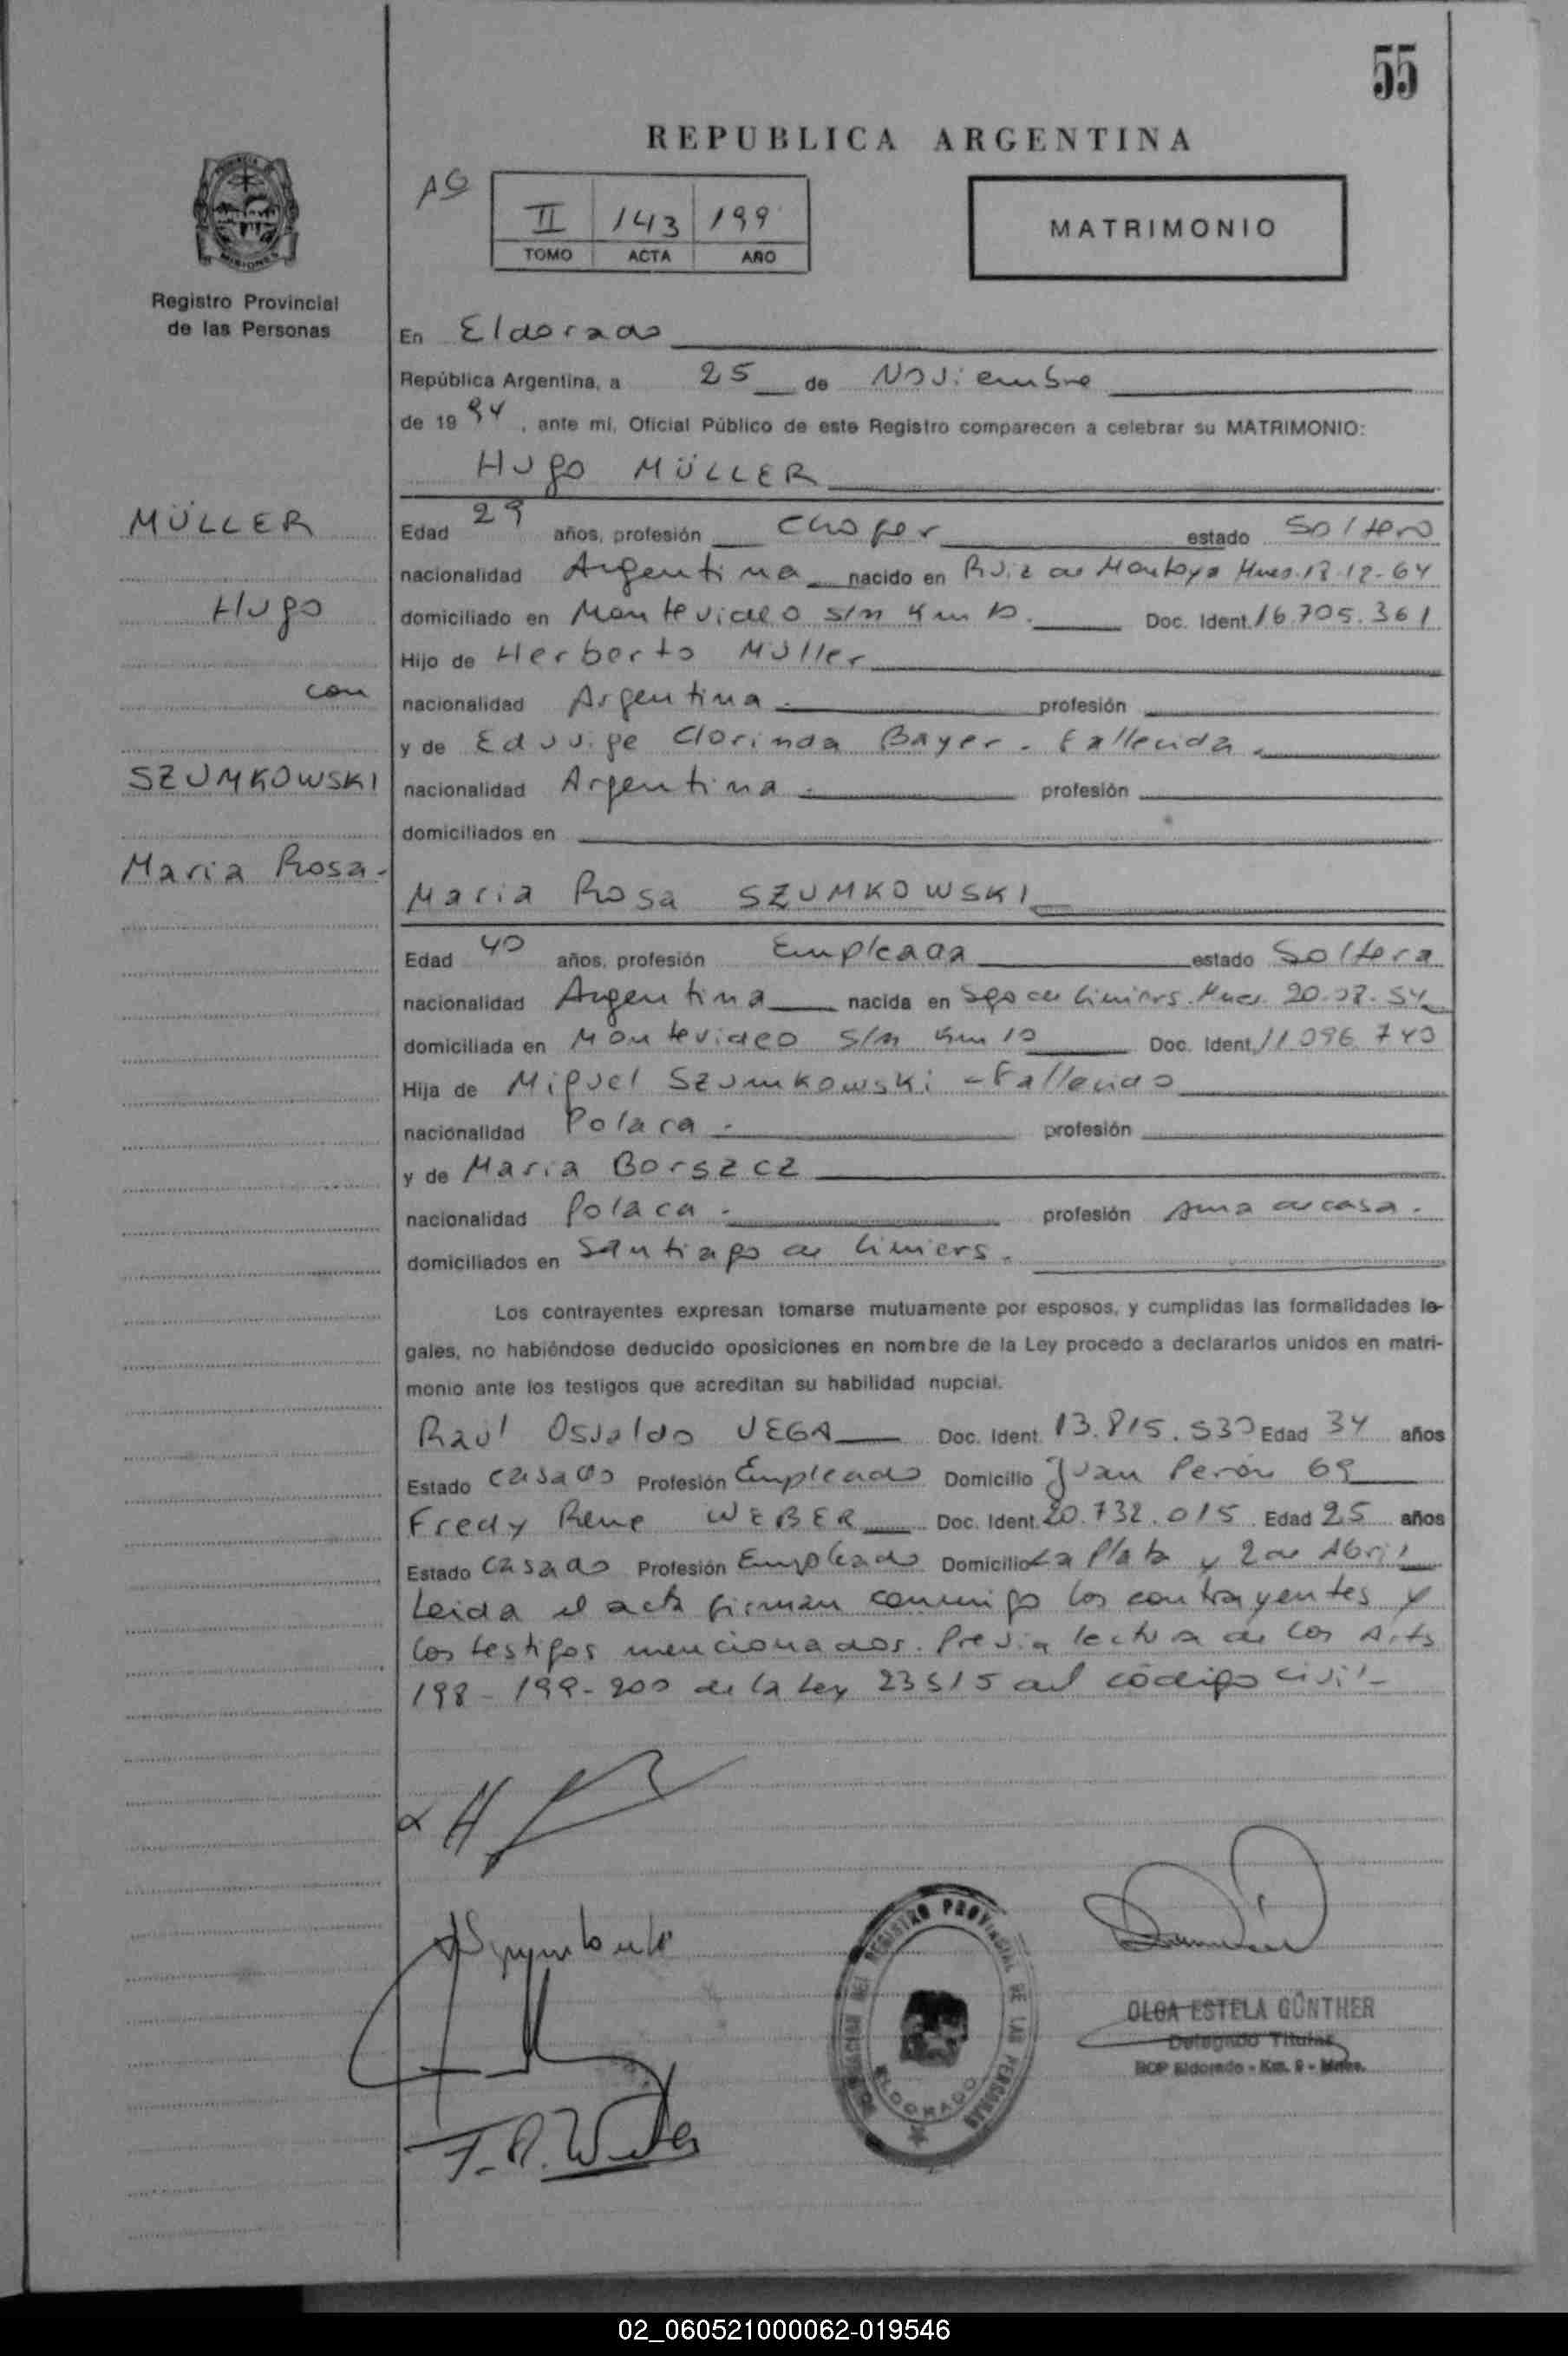 55
REPUBLICA ARGENTINA
AG
II 143 199
TOMO ACTA AÑO
MATRIMONIO
MISIONES
Registro Provincial
de las Personas
En Eldorado
República Argentina, a 25 de Noviembre
de 19 94, ante mi, Oficial Público de este Registro comparecen a celebrar su MATRIMONIO:
Hugo MÜLLER
MÜLLER
Hugo
con
SZUMKOWSKI
Maria Rosa-
Edad 29 años, profesión Chofer estado Soltero
nacionalidad Argentina nacido en Ruiz de Montoya Mnes. 12-12-64
domiciliado en Montevideo s/n Km 10. Doc. Ident. 16.705.361
Hijo de Herberto Müller
nacionalidad Argentina. profesión
y de Eduvige Clorinda Bayer. Fallecida.
nacionalidad Argentina. profesión
domiciliados en
Maria Rosa SZUMKOWSKI
Edad 40 años, profesión Empleada estado Soltera
nacionalidad Argentina nacida en Sgo de Liniers. Mnes. 20.08.54
domiciliada en Montevideo s/n Km 10 Doc. Ident. 11.096.740
Hija de Miguel Szumkowski - Fallecido
nacionalidad Polaca. profesión
y de Maria Borszcz
nacionalidad Polaca. profesión Ama de casa.
domiciliados en Santiago de Liniers.
Los contrayentes expresan tomarse mutuamente por esposos, y cumplidas las formalidades le-
gales, no habiéndose deducido oposiciones en nombre de la Ley procedo a declararlos unidos en matri-
monio ante los testigos que acreditan su habilidad nupcial.
Raul Osvaldo VEGA Doc. Ident. 13.815.530 Edad 34 años
Estado Casado Profesión Empleado Domicilio Juan Perón 69
Fredy Rene WEBER Doc. Ident. 20.732.015 Edad 25 años
Estado Casado Profesión Empleado Domicilio La Plata y 2 de Abril
Leida el acta firman conmigo los contrayentes y
los testigos mencionados. Previa lectura de los Arts
198-199-200 de la Ley 23515 del código civil-
F. R. Weber
REGISTRO PROVINCIAL DE LAS PERSONAS
ELDORADO
OLGA ESTELA GÜNTHER
Delegado Titular
RCP Eldorado - Km. 9 - Mnes.
02_060521000062-019546